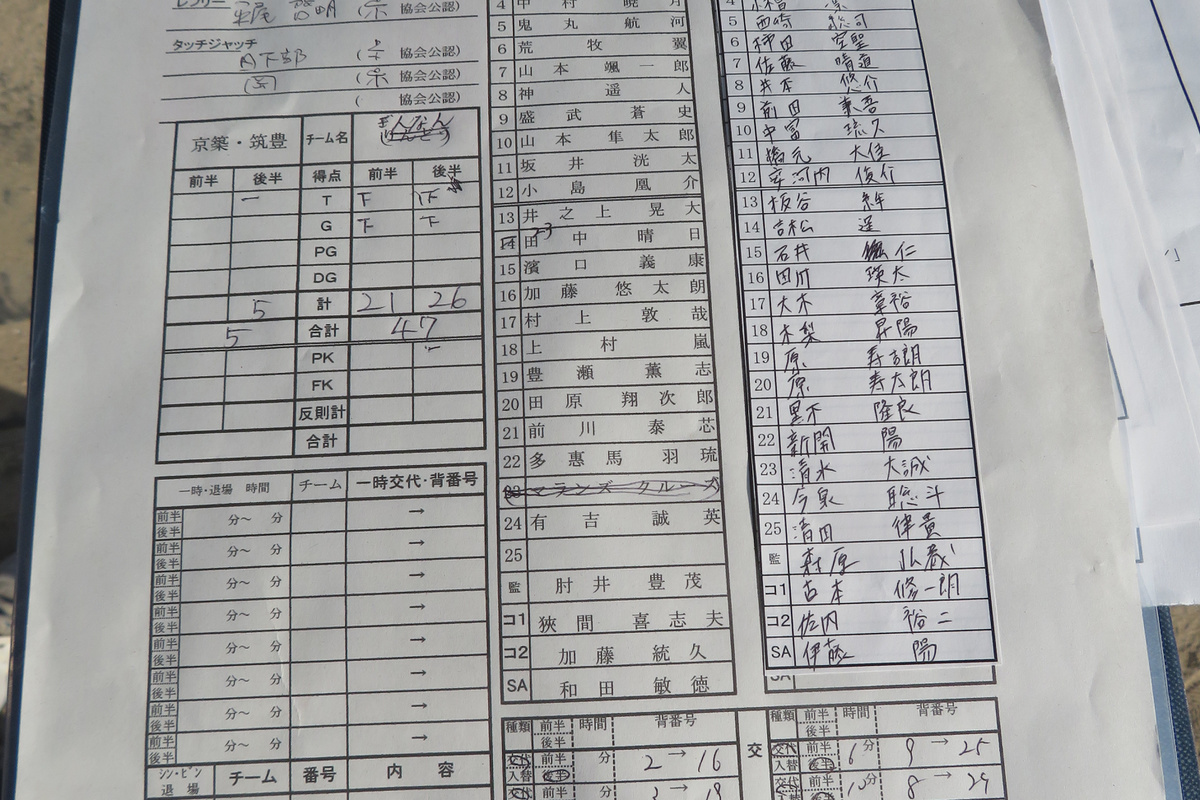 レフリー 啓明 協会公認)
タッチジャッチ
日下部 協会公認)
協会公認)
( 協会公認)
京築・筑豊 チーム名 ぎんなん
前半 後半 得点 前半 後半
一 T 下
G 下 下
PG
DG
5 計 21 26
5 合計 47
PK
FK
反則計
合計
一時・退場 時間 チーム 一時交代・背番号
前半 分～ 分 →
後半
前半 分～ 分 →
後半
前半 分～ 分 →
後半
前半 分～ 分 →
後半
前半 分～ 分 →
後半
前半 分～ 分 →
後半
前半 分～ 分 →
後半
前半 分～ 分 →
後半
シン・ビン 退場 チーム 番号 内容
4 中村 暁月
5 鬼丸 航河
6 荒牧 翼
7 山本 颯一郎
8 神 遥人
9 盛武 蒼史
10 山本 隼太郎
11 坂井 洸太
12 小島 凰介
13 井之上 晃大
田中 晴日 23
15 濱口 義康
16 加藤 悠太朗
17 村上 敦哉
18 上村 嵐
19 豊瀬 薫志
20 田原 翔次郎
21 前川 泰芯
22 多惠馬 羽琉
23 マランズ クルーズ
24 有吉 誠英
25
監 肘井 豊茂
コ1 狹間 喜志夫
コ2 加藤 統久
SA 和田 敏徳
4
5 西崎 聡司
6 柿田 空聖
7 佐藤 晴道
8 井本 悠介
9 前田 兼吾
10 中冨 琉久
11 橋元 大佳
12 安河内 俊介
13 板谷 絆
14 吉松 遥
15 石井 仁
16 田川 瑛太
17 大木 章裕
18 木梨 昇陽
19 原 寿吉朗
20 原 寿太朗
21 黒木 隆良
22 新開 陽
23 清水 大誠
24 今泉 聡斗
25 清田 律貴
監 森原 弘蔵
コ1 古本 修一朗
コ2 佐内 裕二
SA 伊藤 陽
SA
種類 前半 後半 時間 背番号
交代 前半 分 2→16
入替 後半
交代 前半 分
交
種類 前半 後半 時間 背番号
交代 前半 6分 9→25
入替 後半
交代 前半 10分 8→24
入替 後半